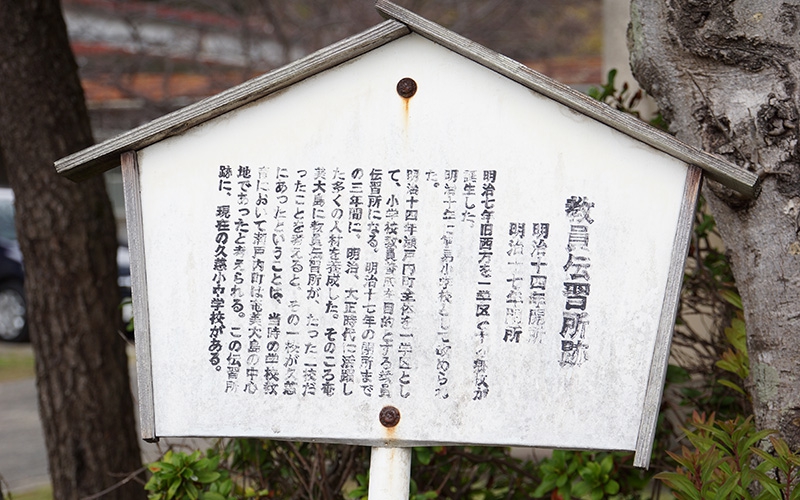 教員伝習所跡
明治十四年開所
明治十七年閉所
明治七年旧西方を一学区とする郷校が
誕生した。
明治十年に久慈小学校として改められ
た。
明治十四年瀬戸内町全体を一学区とし
て、小学校教員養成を目的とする教員
伝習所になる。明治十七年の閉所まで
の三年間に、明治、大正時代に活躍し
た多くの人材を養成した。そのころ奄
美大島に教員伝習所が、たった二校だ
ったことを考えると、その一校が久慈
にあったということは、当時の学校教
育において瀬戸内町は奄美大島の中心
地であったと考えられる。この伝習所
跡に、現在の久慈小中学校がある。